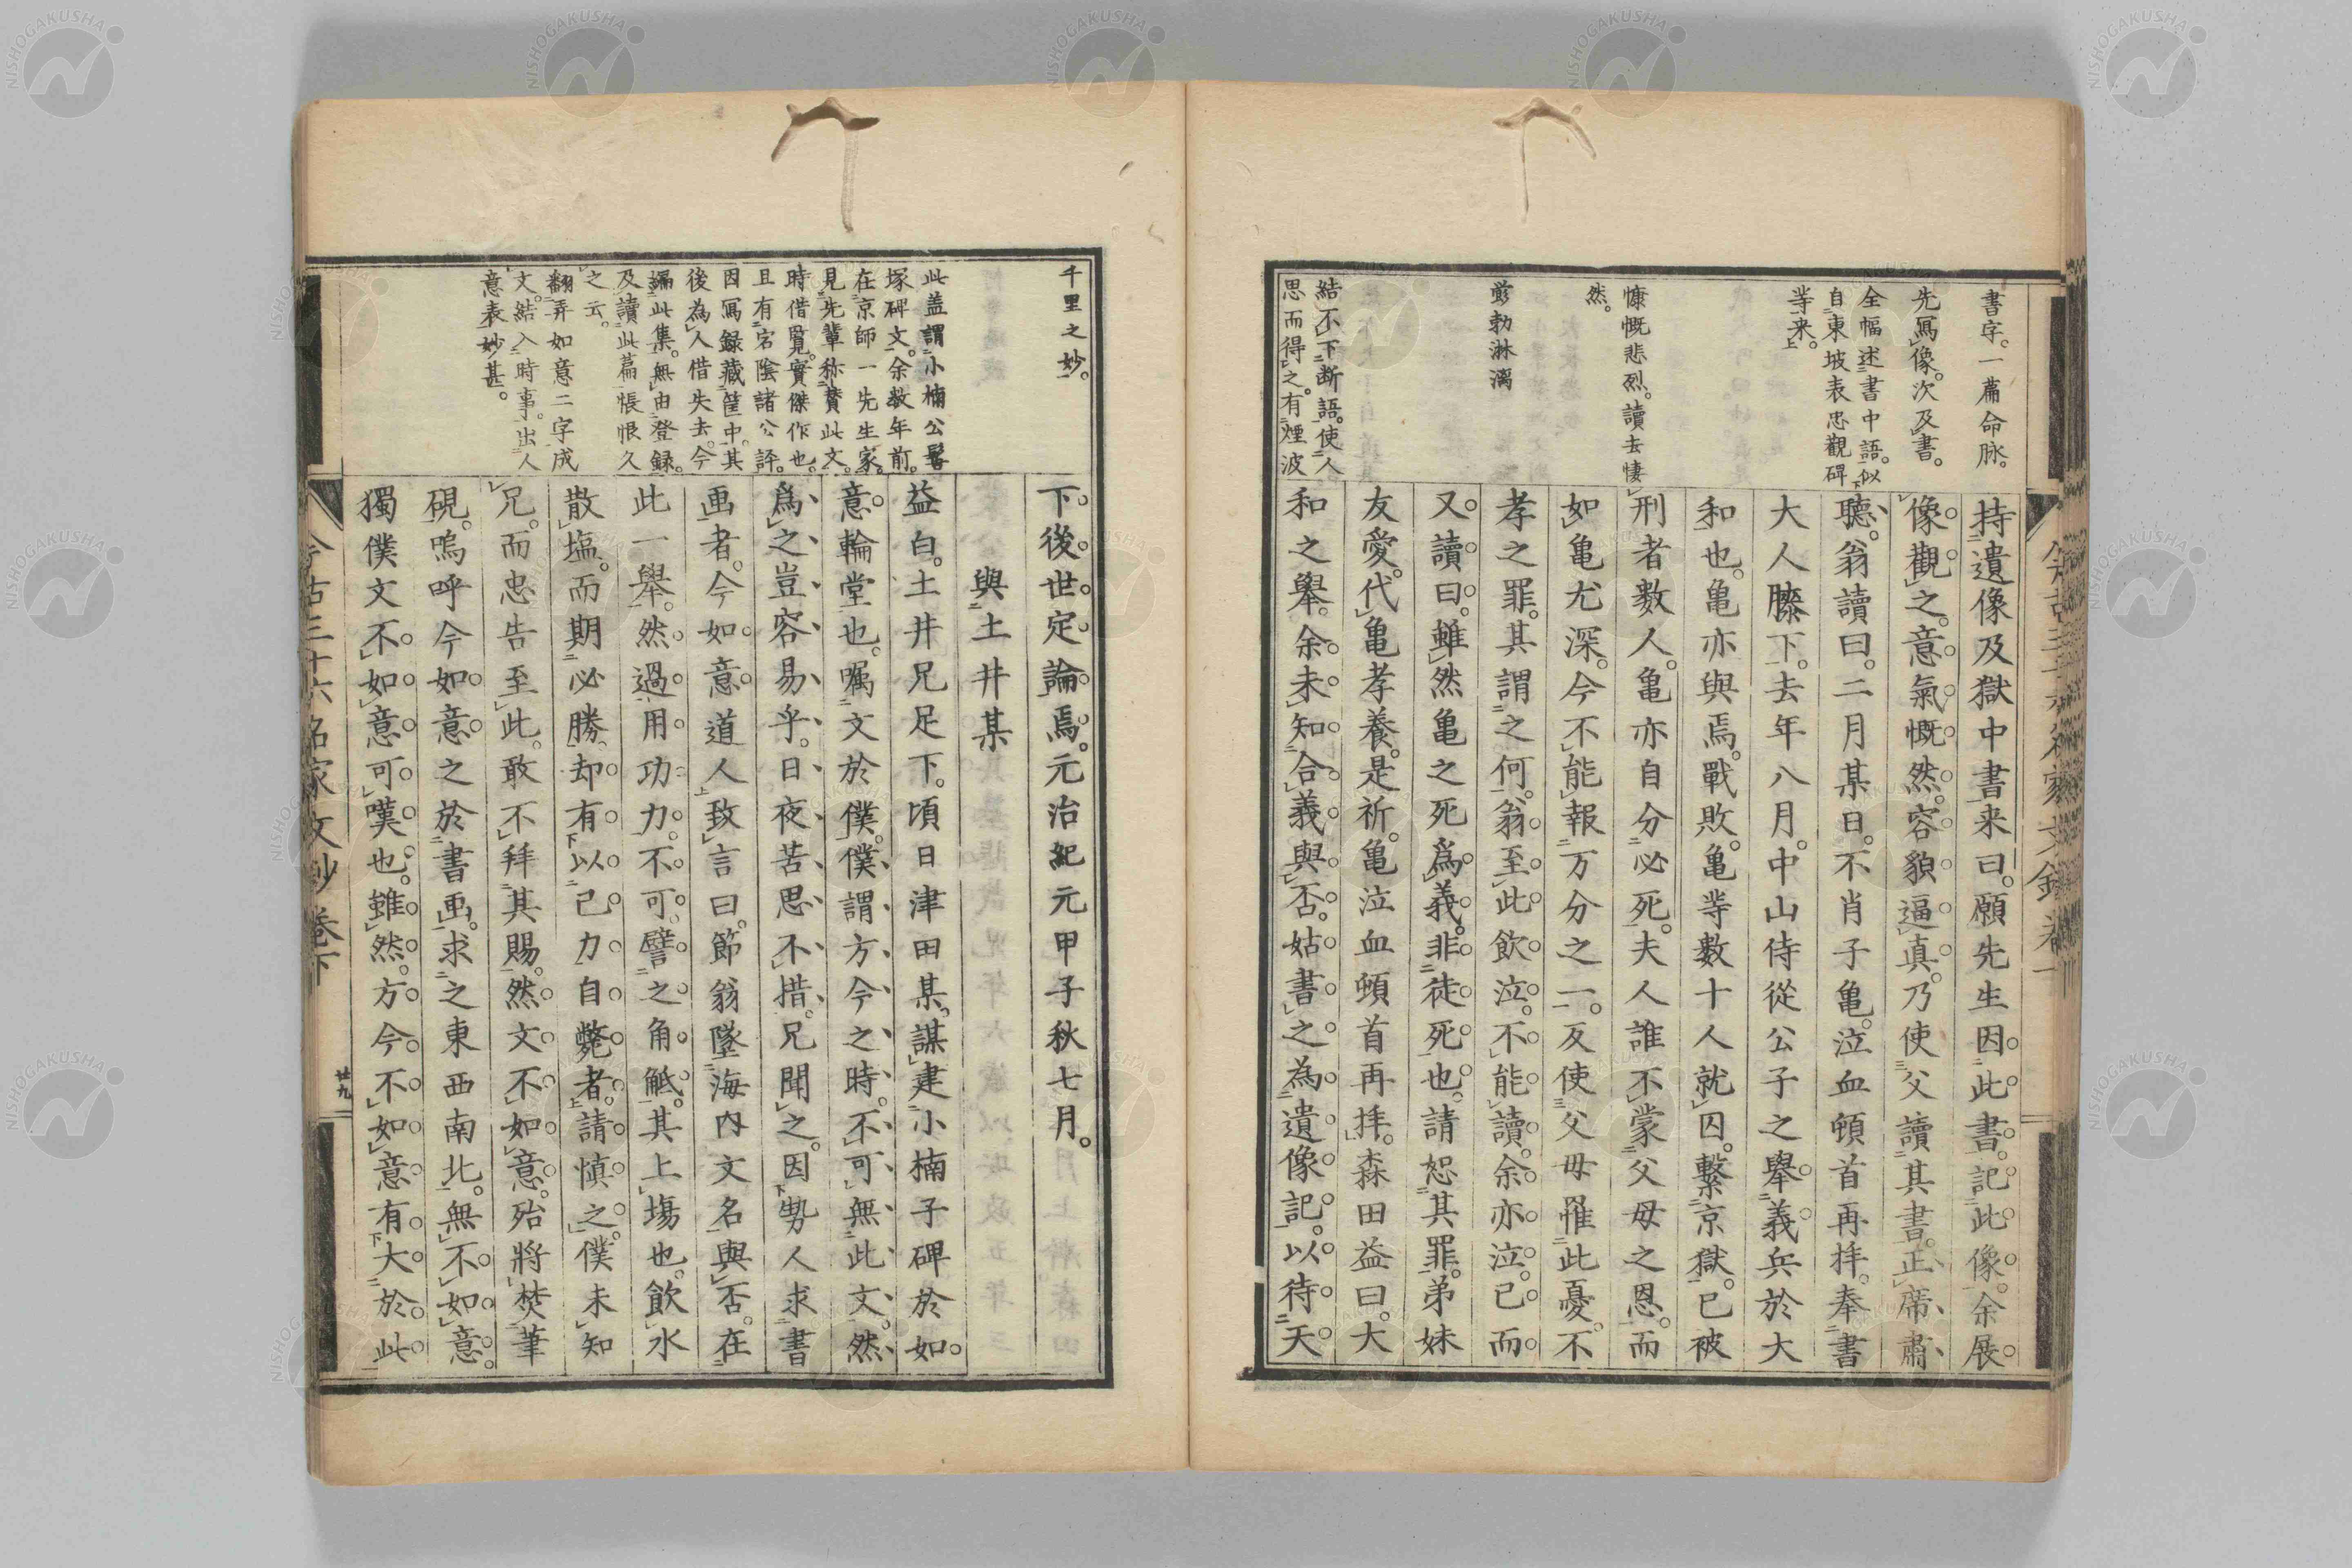 書字。一篇命脉。
先寫像。次及書。
全幅述書中語。似
自東坡表忠觀碑
等来。
慷慨悲烈。讀去悽
然。
剪勃淋漓
結不下断語。使人
思而得之。有煙波
持遺像及獄中書来曰。願先生因此書。記此像。余展
像觀之。意氣慨然。容貌逼真。乃使父讀其書。正席肅
聽。翁讀曰。二月某日。不肖子亀。泣血頓首再拝。奉書
大人膝下。去年八月。中山侍從公子之擧義兵於大
和也。亀亦與焉。戰敗。亀等數十人就囚。繫京獄。已被
刑者數人。亀亦自分必死。夫人誰不蒙父母之恩。而
如亀尤深。今不能報万分之一。反使父母罹此憂。不
孝之罪。其謂之何。翁至此飲泣。不能讀。余亦泣。已而
又讀曰。雖然亀之死為義。非徒死也。請恕其罪。弟妹
友愛。代亀孝養。是祈。亀泣血頓首再拝。森田益曰。大
和之擧。余未知合義與否。姑書之為遺像記。以待天
千里之妙。
此盖謂小楠公髻
塚碑文。余数年前。
在京師一先生家。
見先輩称賛此文。
時借覓。實傑作也。
且有宕陰諸公評。
因寫録藏筐中。其
後為人借失去。今
編此集。無由登録。
及讀此篇。悵恨久
之云。
翻弄如意二字成
文。結入時事。出人
意表。妙甚。
下後世定論焉。元治紀元甲子秋七月。
與土井某
益白。土井兄足下。頃日津田某。謀建小楠子碑於如
意輪堂也。嘱文於僕。僕謂方今之時。不可無此文。然
為之豈容易乎。日夜苦思不措。兄聞之。因勢人求書
画者。今如意道人致言曰。節翁墜海内文名與否。在
此一擧。然過用功力。不可。譬之角觝。其上場也。飲水
散塩。而期必勝。却有以己力自斃者。請慎之。僕未知
兄。而忠告至此。敢不拜其賜。然文不如意。殆將焚筆
硯。嗚呼今如意之於書画。求之東西南北。無不如意。
獨僕文不如意。可嘆也。雖然。方今不如意有大於此
今古三十六名家文鈔 巻下
廿九